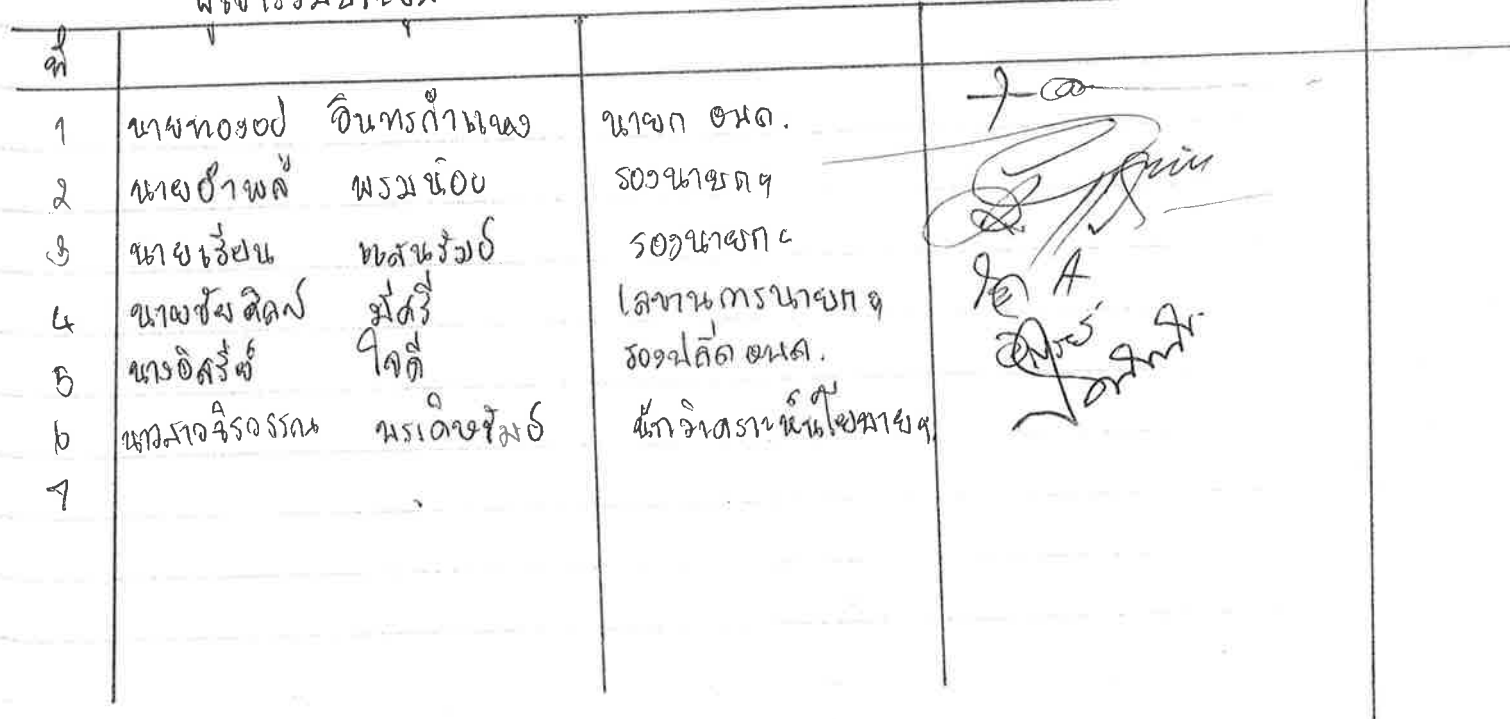 ผู้เข้าร่วมประชุม
ที่
1 นายทองอบ อินทรกำแหง นายก อบต.
2 นายอำพล พรมน้อย รองนายกฯ
3 นายเรียน แสนรัมย์ รองนายกฯ
4 นายชัยศิลป์ มีศรี เลขานุการนายกฯ
5 นางอิสรีย์ ใจดี รองปลัด อบต.
6 นางสาวจิรวรรณ พรเดิษรัมย์ นักวิเคราะห์นโยบายฯ
7